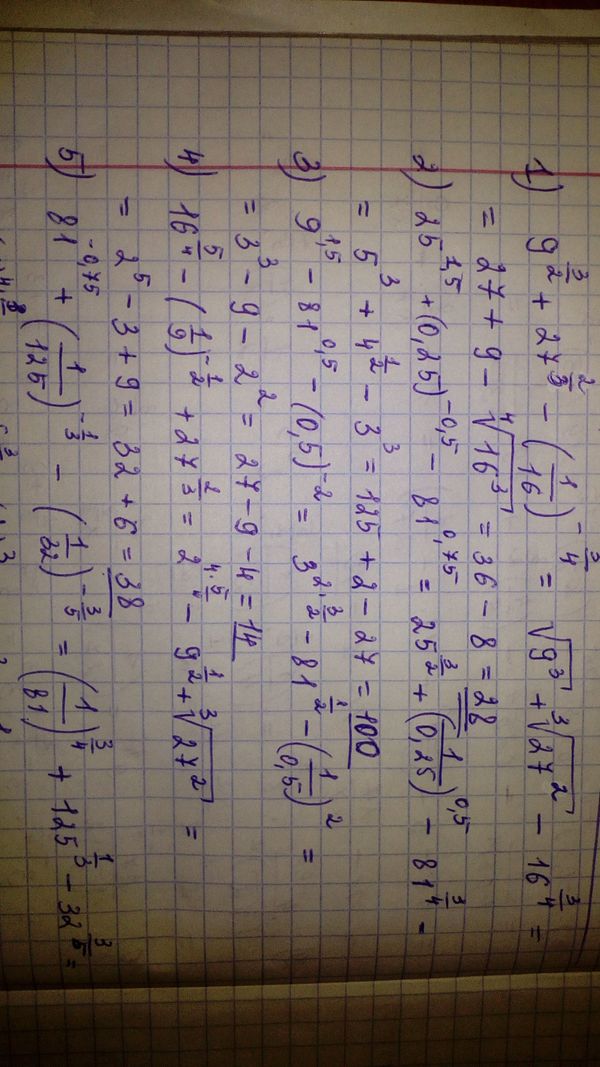 1) 9^(3/2) + 27^(2/3) − (1/16)^(−3/4) = √9³ + ³√27² − 16^(3/4) =
= 27 + 9 − ⁴√16³ = 36 − 8 = 28
2) 25^(1,5) + (0,25)^(−0,5) − 81^(0,75) = 25^(3/2) + (1/0,25)^(0,5) − 81^(3/4) =
= 5³ + 4^(1/2) − 3³ = 125 + 2 − 27 = 100
3) 9^(1,5) − 81^(0,5) − (0,5)^(−2) = 3^(2·3/2) − 81^(1/2) − (1/0,5)² =
= 3³ − 9 − 2² = 27 − 9 − 4 = 14
4) 16^(5/4) − (1/9)^(−1/2) + 27^(2/3) = 2^(4·5/4) − 9^(1/2) + ³√27² =
= 2⁵ − 3 + 9 = 32 + 6 = 38
5) 81^(−0,75) + (1/125)^(−1/3) − (1/32)^(−3/5) = (1/81)^(3/4) + 125^(1/3) − 32^(3/5) =